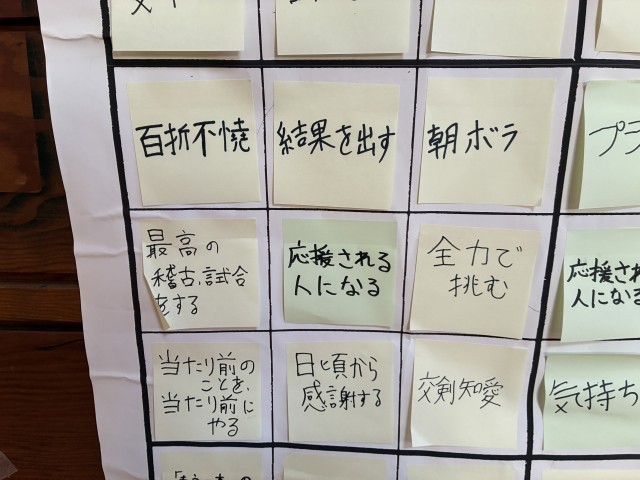 百折不撓
結果を出す
朝ボラ
プラ
最高の
稽古、試合
をする
応援される
人になる
全力で
挑む
応援され
人になる
当たり前の
ことを、
当たり前に
やる
日頃から
感謝する
交剣知愛
気持ち